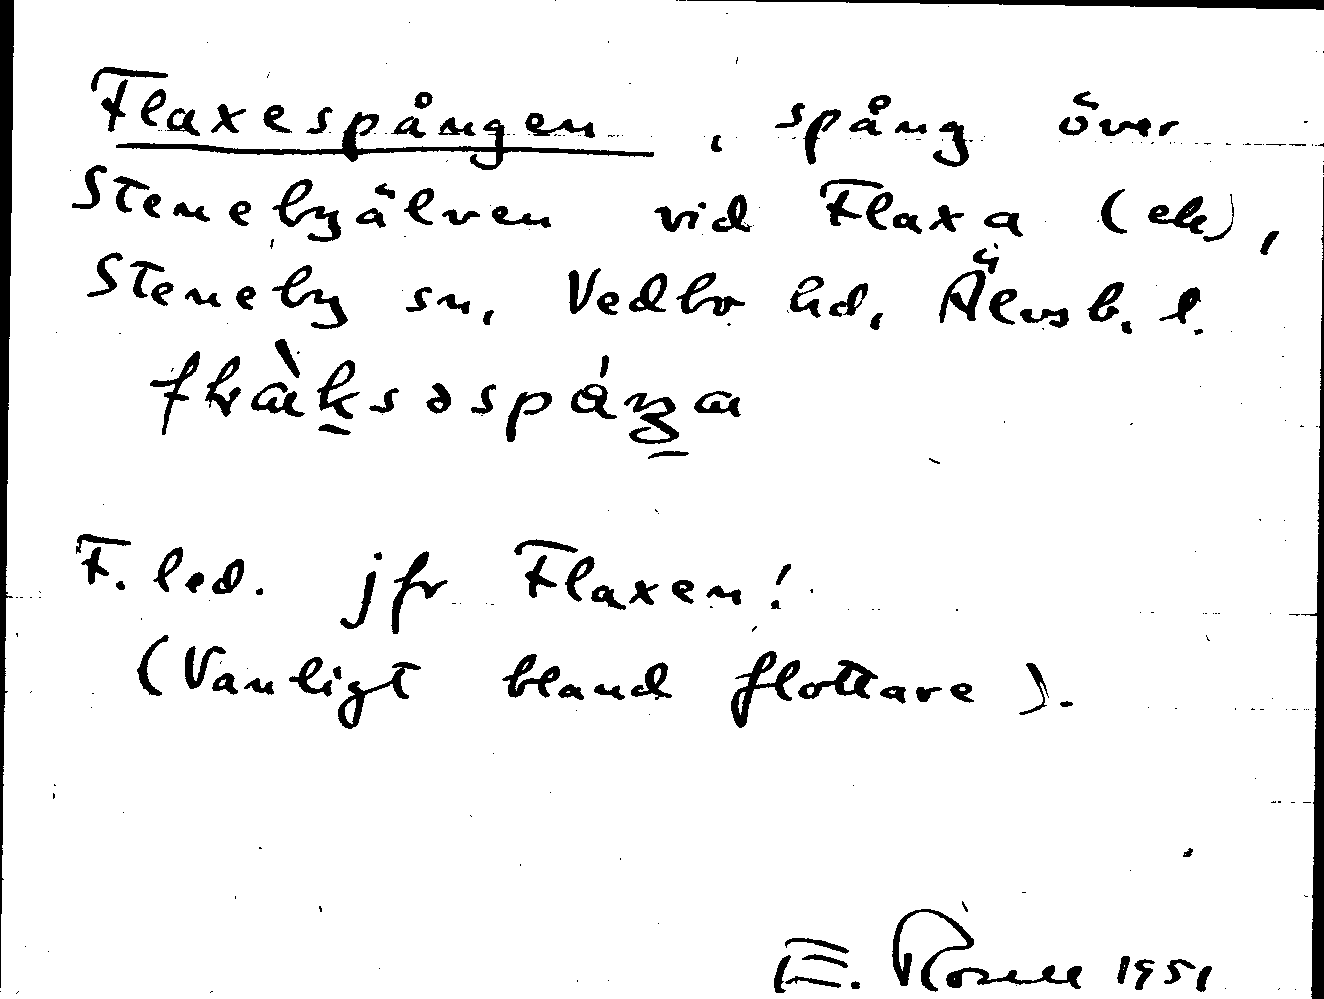 Flaxespången, spång över
Stenebyälven vid Flaxa (ek),
Steneby sn, Vedbo hd, Älvsb. l.
F. led. jfr Flaxen!
(Vanligt bland flottare).
E. Rosell 1951